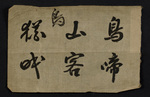 鳥啼
山客
鳥
猶眠